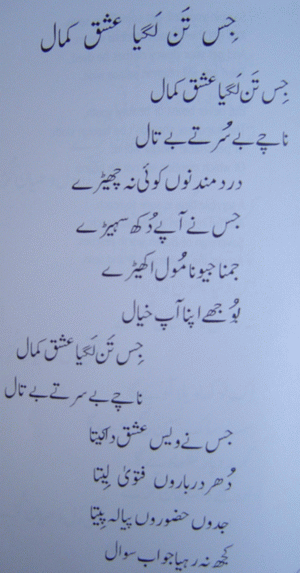 جِس تَن لَگیا عشق کمال
جِس تَن لَگیا عشق کمال
ناچے بے سُر تے بے تال
درد مند نوں کوئی نہ چھیڑے
جس نے آپے دُکھ سہیڑے
جمنا جیونا مُول اکھیڑے
بُوجھے اپنا آپ خیال
جِس تَن لَگیا عشق کمال
ناچے بے سر تے بے تال
جس نے ویس عشق دا کیتا
دُھر درباروں فتویٰ لِیتا
جدوں حضوروں پیالہ پِیتا
کجھ نہ رہیا جواب سوال